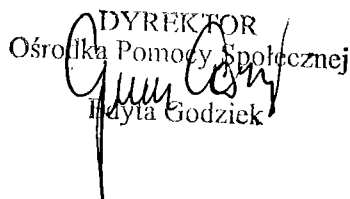 DYREKTOR
Ośrodka Pomocy Społecznej
Edyta Godziek